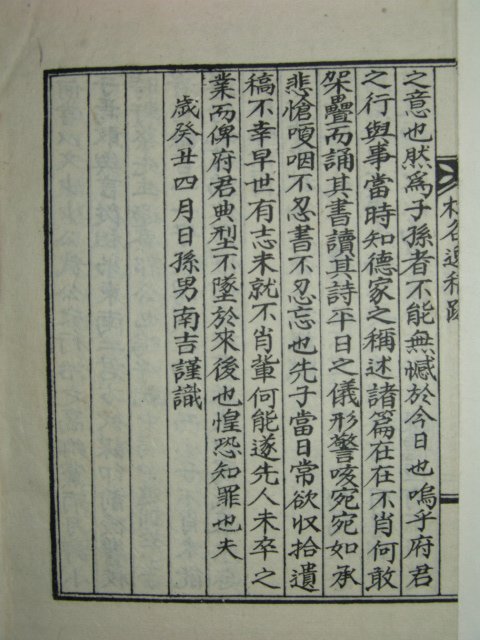 逸稿跋
之意也然爲子孫者不能無憾於今日也嗚乎府君
之行與事當時知德家之稱述諸篇在在不肖何敢
架疊而誦其書讀其詩平日之儀形警咳宛宛如承
悲愴哽咽不忍書不忍忘也先子當日常欲収拾遺
稿不幸早世有志未就不肖輩何能遂先人未卒之
業而俾府君典型不墜於來後也惶恐知罪也夫
歲癸丑四月日孫男南吉謹識